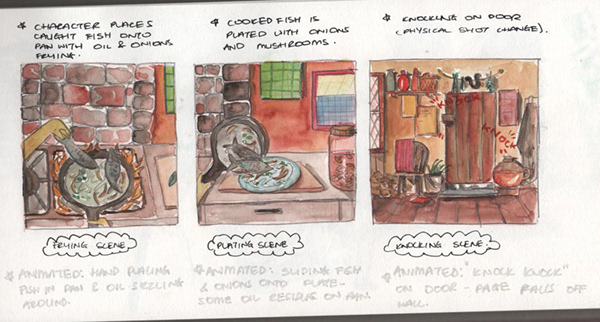 * CHARACTER PLACES
CAUGHT FISH ONTO
PAN WITH OIL & ONIONS
FRYING.
FRYING SCENE
* ANIMATED: HAND PLACING
FISH IN PAN & OIL SIZZLING
AROUND.
* COOKED FISH IS
PLATED WITH ONIONS
AND MUSHROOMS.
PLATING SCENE
* ANIMATED: SLIDING FISH
& ONIONS ONTO PLATE-
SOME OIL RESIDUE ON PAN.
* KNOCKING ON DOOR
(PHYSICAL SHOT CHANGE).
KNOCK
KNOCK
KNOCKING SCENE.
* ANIMATED: "KNOCK KNOCK"
ON DOOR - PAGE FALLS OFF
WALL.